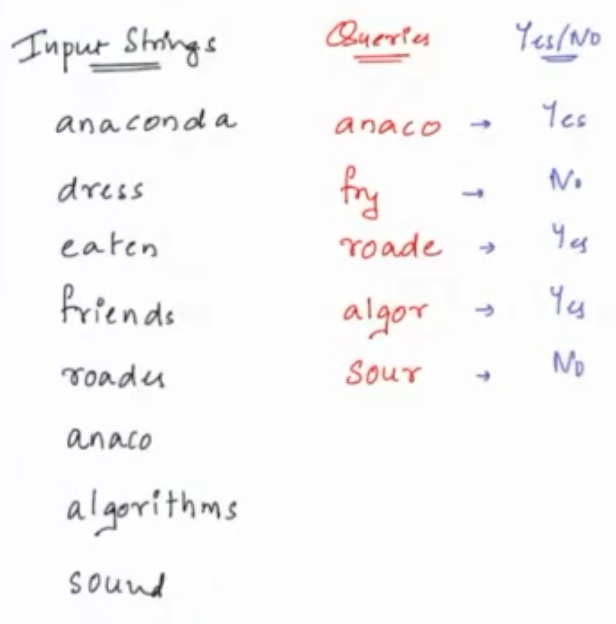 Input Strings Queries Yes/No
anaconda anaco → Yes
dress fry → No
eaten roade → Yes
friends algor → Yes
roades sour → No
anaco
algorithms
sound